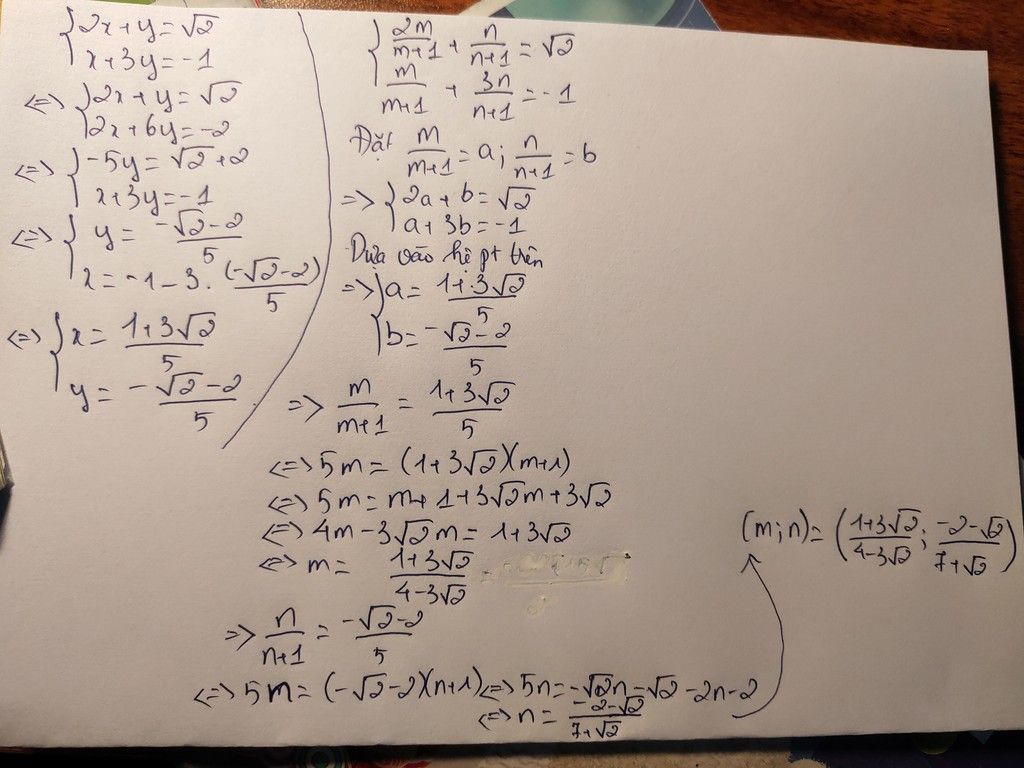 {2x+y=√2
x+3y=-1
<=> {2x+y=√2
2x+6y=-2
<=> {-5y=√2+2
x+3y=-1
<=> {y= (-√2-2)/5
x=-1-3.(-√2-2)/5
<=> {x= (1+3√2)/5
y= (-√2-2)/5
{2m/(m+1) + n/(n+1) =√2
m/(m+1) + 3n/(n+1) =-1
Đặt m/(m+1) =a; n/(n+1) =b
=> {2a+b=√2
a+3b=-1
Dựa vào hệ pt trên
=> {a= (1+3√2)/5
b= (-√2-2)/5
=> m/(m+1) = (1+3√2)/5
<=> 5m= (1+3√2)(m+1)
<=> 5m=m+1+3√2m+3√2
<=> 4m-3√2m= 1+3√2
<=> m= (1+3√2)/(4-3√2)
=> n/(n+1) = (-√2-2)/5
<=> 5m= (-√2-2)(n+1) <=> 5n=-√2n-√2-2n-2
<=> n= (-2-√2)/(7+√2)
(m;n)= ((1+3√2)/(4-3√2); (-2-√2)/(7+√2))